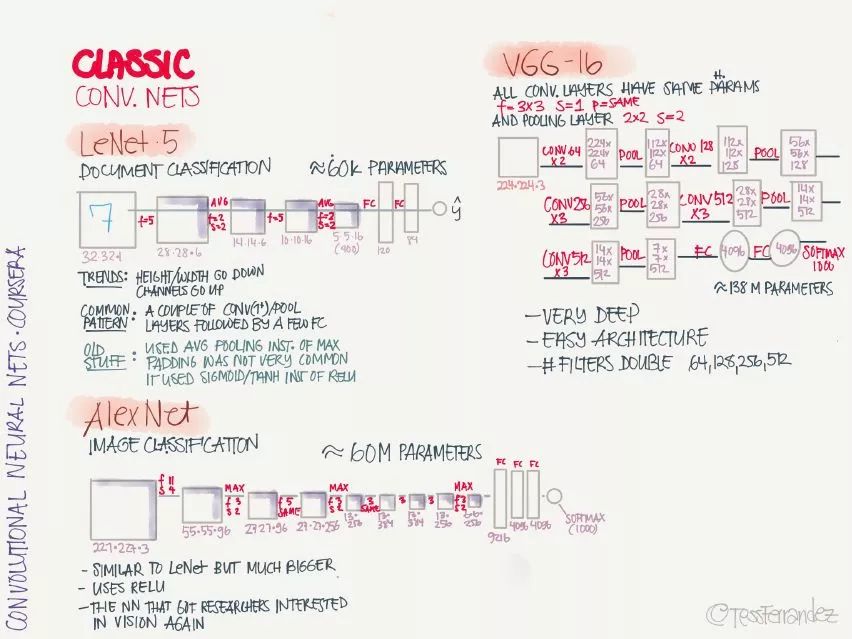 CLASSIC
CONV. NETS
LeNet-5
DOCUMENT CLASSIFICATION ≈60K PARAMETERS
7
f=5
AVG
f=2
S=2
f=5
AVG
f=2
S=2
FC
FC
ŷ
32·32·1
28·28·6
14·14·6
10·10·16
5·5·16
(400)
120
84
TRENDS: HEIGHT/WIDTH GO DOWN
CHANNELS GO UP
COMMON PATTERN: A COUPLE OF CONV(1+)/POOL
LAYERS FOLLOWED BY A FEW FC
OLD STUFF: USED AVG POOLING INST. OF MAX
PADDING WAS NOT VERY COMMON
IT USED SIGMOID/TANH INST OF RELU
AlexNet
IMAGE CLASSIFICATION ≈ 60M PARAMETERS
f 11
S 4
MAX
f 3
S 2
f 5
SAME
MAX
f 3
S 2
3
SAME
3
3
MAX
f 3
S 2
FC
FC
FC
227·227·3
55·55·96
27·27·96
27·27·256
13·
256
13·
384
13·
384
13·
256
6·6·
256
9216
4096
4096
SOFTMAX
(1000)
- SIMILAR TO LeNet BUT MUCH BIGGER
- USES RELU
- THE NN THAT GOT RESEARCHERS INTERESTED
IN VISION AGAIN
VGG-16
ALL CONV. LAYERS HAVE SAME H. PARAMS
f=3x3 S=1 P=SAME
AND POOLING LAYER 2x2 S=2
224·224·3
CONV 64
x2
224x
224x
64
POOL
112x
112x
64
CONV 128
x2
112x
112x
128
POOL
56x
56x
128
CONV 256
x3
56x
56x
256
POOL
28x
28x
256
CONV 512
x3
28x
28x
512
POOL
14x
14x
512
CONV 512
x3
14x
14x
512
POOL
7x
7x
512
FC
4096
FC
4096
SOFTMAX
1000
≈138 M PARAMETERS
- VERY DEEP
- EASY ARCHITECTURE
- # FILTERS DOUBLE 64,128,256,512
CONVOLUTIONAL NEURAL NETS · COURSERA
©TessFerrandez